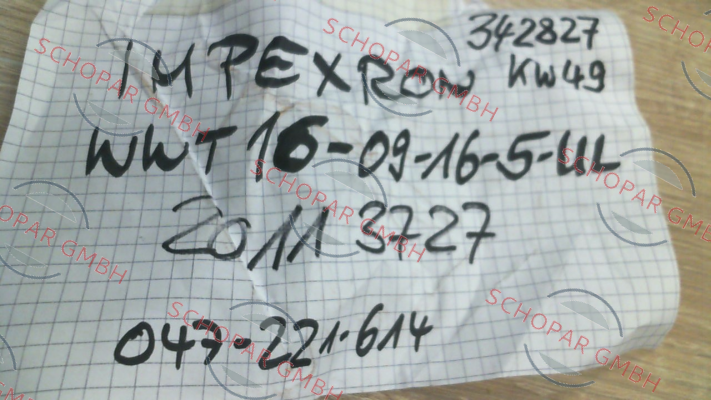 342827
IMPEXRON KW49
WWT 16-09-16-5-UL
2011 3727
047-221-614
SCHOPAR GMBH
SCHOPAR GMBH
SCHOPAR GMBH
SCHOPAR GMBH
SCHOPAR GMBH
SCHOPAR GMBH
SCHOPAR GMBH
SCHOPAR GMBH